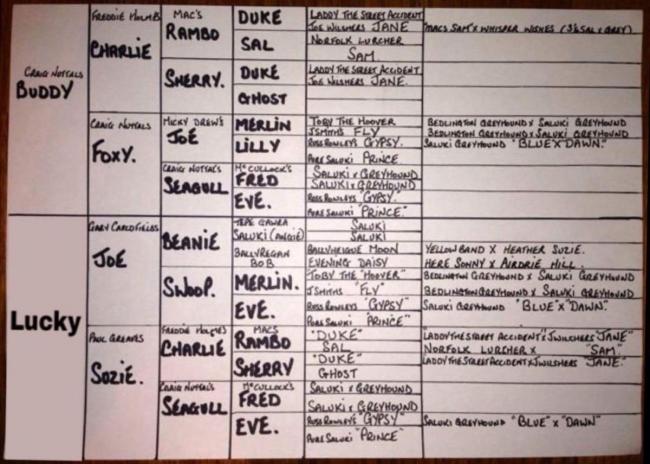 CRAIG NUTTALS
BUDDY
FREDDIE HOLMES
CHARLIE
CRAIG NUTTALS
FOXY.
MAC'S
RAMBO
SHERRY.
MICKY DREW'S
JOE
CRAIG NUTTAL'S
SEAGULL
DUKE
SAL
DUKE
GHOST
MERLIN
LILLY
McCULLOCK'S
FRED
EVE.
LADDY THE STREET ACCIDENT
JOE WILSHERS JANE
NORFOLK LURCHER
SAM
LADDY THE STREET ACCIDENT
JOE WILSHERS JANE.
TOBY THE HOOVER
JSMITHS FLY
ROSS ROWLEYS GYPSY.
PURE SALUKI PRINCE
SALUKI X GREYHOUND
SALUKI X GREYHOUND
ROSS ROWLEYS "GYPSY."
PURE SALUKI "PRINCE."
MACS SAM X WHISPER WISHES (3/4 SAL X GREY)
BEDLINGTON GREYHOUND X SALUKI GREYHOUND
BEDLINGTON GREYHOUND X SALUKI GREYHOUND
SALUKI GREYHOUND "BLUE" X "DAWN."
Lucky
GARY CARDFIELDS
JOE
PAUL GREAVES
SUZIE.
BEANIE
SWOOP.
FREDDIE HOLMES
CHARLIE
CRAIG NUTTAL'S
SEAGULL
SALUKI (ANGIE)
BALLYREGAN
BOB
MERLIN.
EVE.
MACS
RAMBO
SHERRY
McCULLOCK'S
FRED
EVE.
SALUKI
SALUKI
BALLYHEIGUE MOON
EVENING DAISY
"TOBY THE "HOOVER"
JSMITHS "FLY"
ROSS ROWLEYS "GYPSY"
PURE SALUKI "PRINCE"
"DUKE"
SAL
"DUKE"
GHOST
SALUKI X GREYHOUND
SALUKI X GREYHOUND
ROSS ROWLEY'S "GYPSY"
PURE SALUKI "PRINCE"
YELLOW BAND X HEATHER SUZIE.
HERE SONNY X AIRDRIE HILL.
BEDLINGTON GREYHOUND X SALUKI GREYHOUND
BEDLINGTON GREYHOUND X SALUKI GREYHOUND
SALUKI GREYHOUND "BLUE" X "DAWN."
"LADDY THE STREET ACCIDENT" X JWILSHERS "JANE"
NORFOLK LURCHER X "SAM."
"LADDY THE STREET ACCIDENT X JWILSHERS "JANE."
SALUKI GREYHOUND "BLUE" X "DAWN"